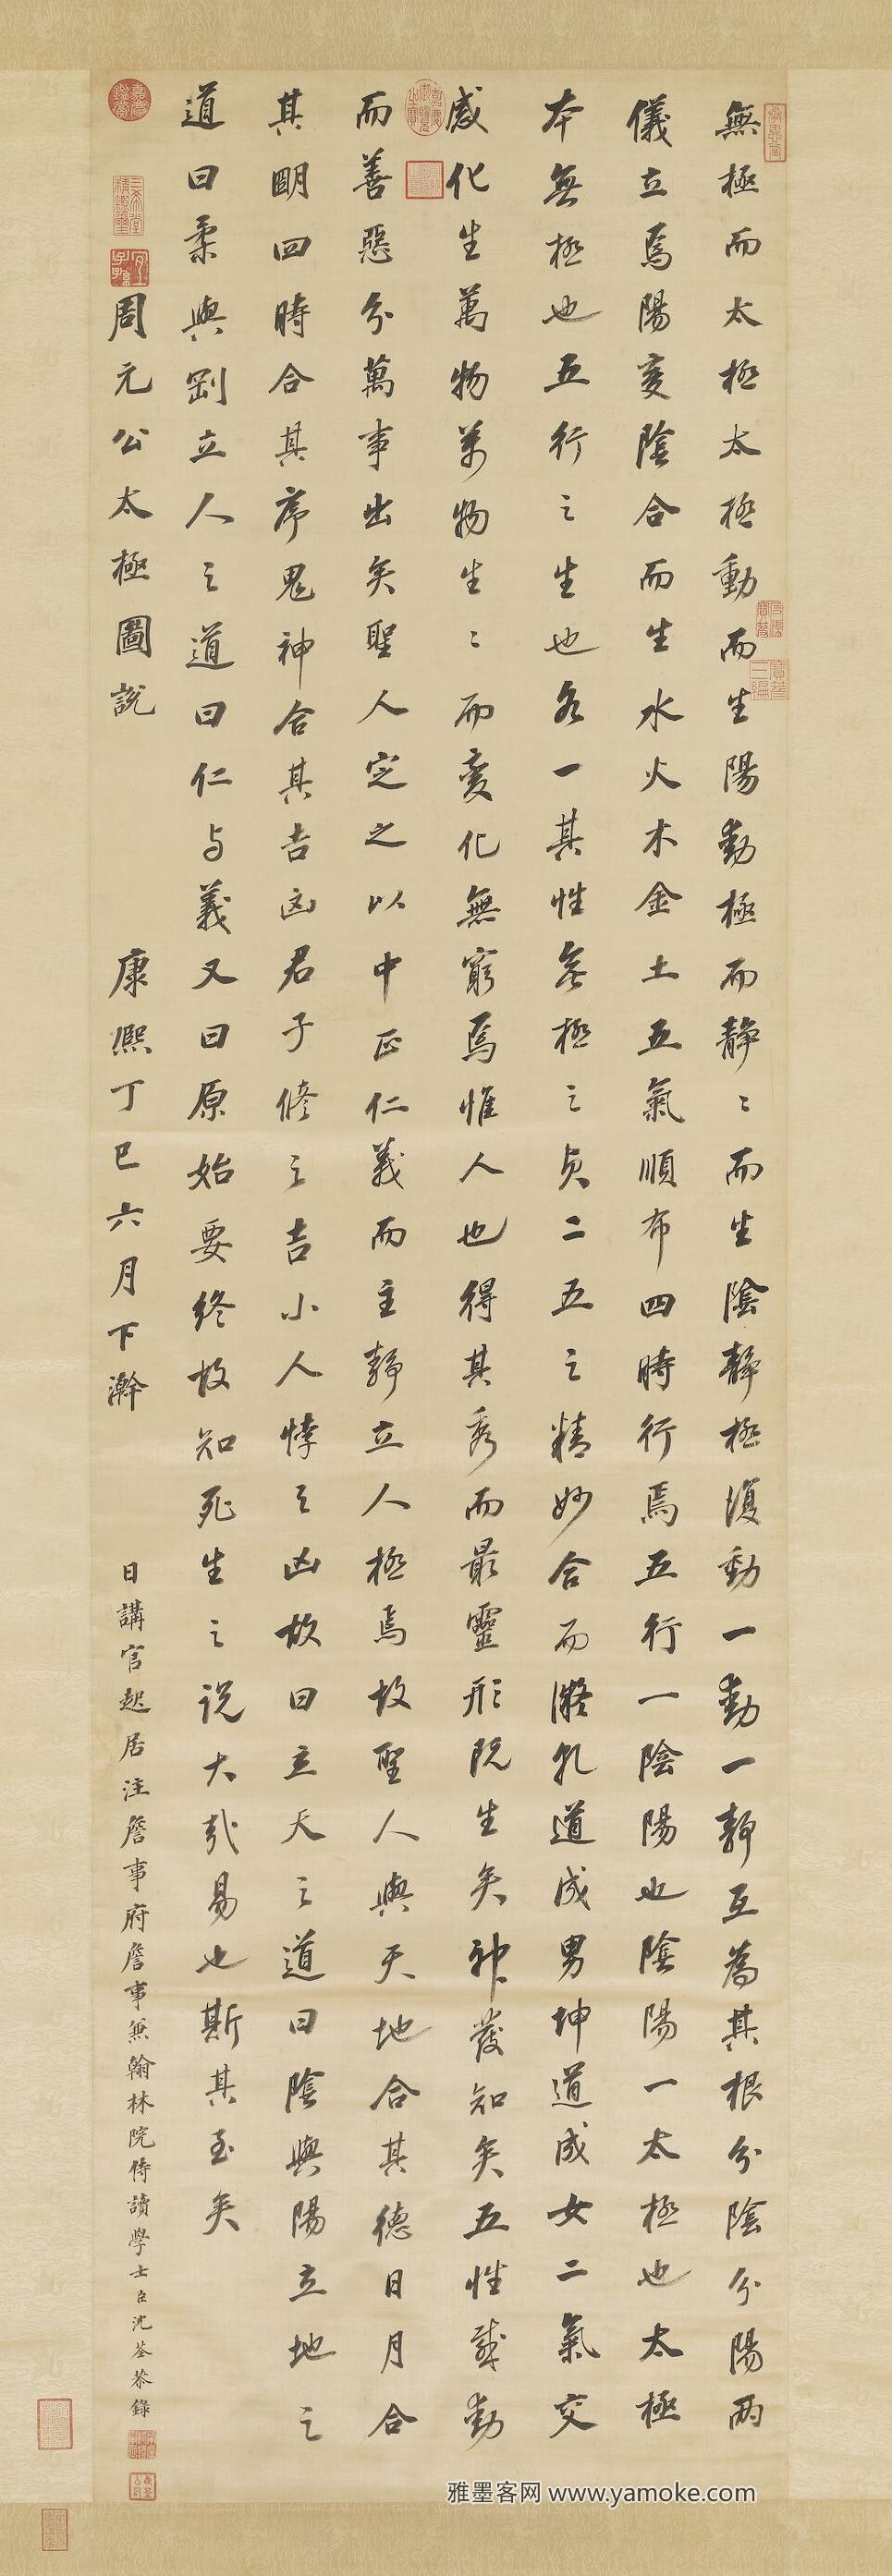 無極而太極太極動而生陽動極而靜〻而生陰靜極復動一動一靜互為其根分陰分陽兩
儀立焉陽變陰合而生水火木金土五氣順布四時行焉五行一陰陽也陰陽一太極也太極
本無極也五行之生也各一其性無極之貞二五之精妙合而凝乾道成男坤道成女二氣交
感化生萬物萬物生〻而變化無窮焉惟人也得其秀而最靈形既生矣神發知矣五性感動
而善惡分萬事出矣聖人定之以中正仁義而主靜立人極焉故聖人與天地合其德日月合
其明四時合其序鬼神合其吉凶君子修之吉小人悖之凶故曰立天之道曰陰與陽立地之
道曰柔與剛立人之道曰仁与義又曰原始要終故知死生之說大哉易也斯其至矣
周元公太極圖說
康熙丁巳六月下澣
日講官起居注詹事府詹事兼翰林院侍讀學士臣沈荃恭錄
雅墨客网 www.yamoke.com